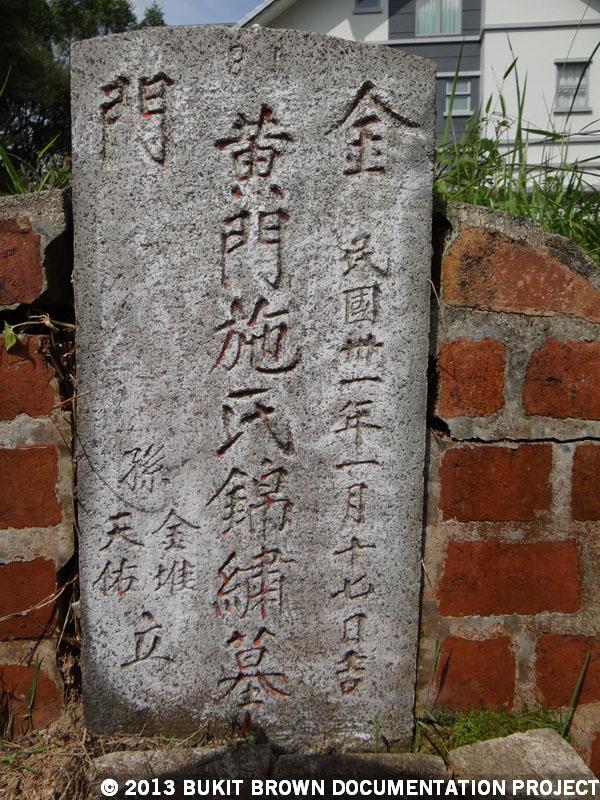 金
門
民國卅一年一月十七日吉
黃門施氏錦繡墓
孫
金堆
天佑
立
© 2013 BUKIT BROWN DOCUMENTATION PROJECT